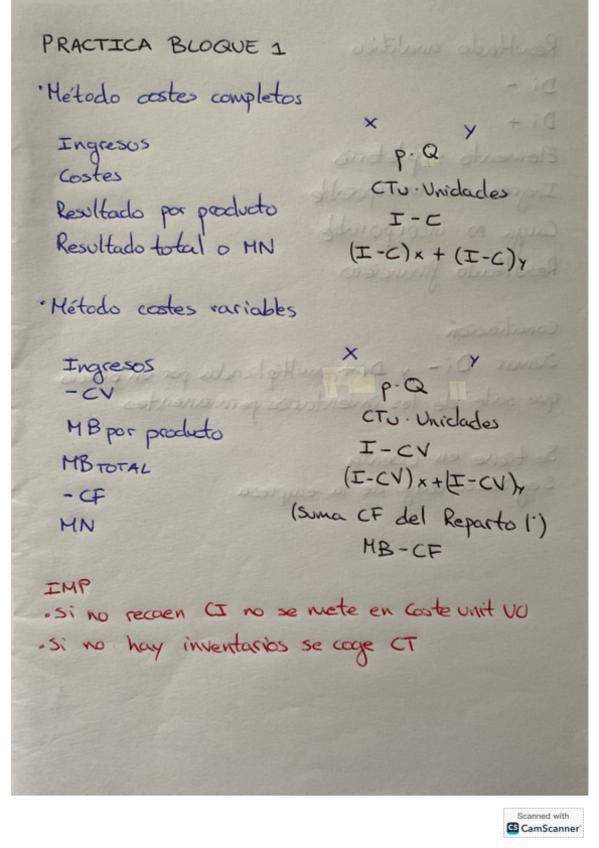 PRACTICA BLOQUE 1
·Método costes completos
X Y
Ingresos p·Q
Costes CTu·Unidades
Resultado por producto I-C
Resultado total o MN (I-C)x + (I-C)y
·Método costes variables
X Y
Ingresos p·Q
-CV CTu·Unidades
MB por producto I-CV
MB TOTAL (I-CV)x+(I-CV)y
-CF (Suma CF del Reparto 1º)
MN MB-CF
IMP
·Si no recaen CI no se mete en Coste unit UO
·Si no hay inventarios se coge CT
Scanned with
CS CamScanner